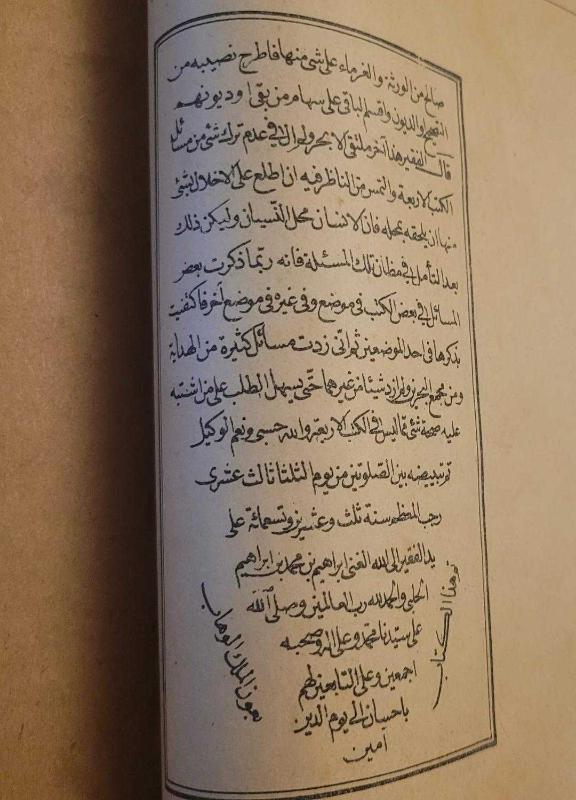 صالح من الورثة والغرماء على شئ منها فاطرح نصيبه من
التصحيح والديون واقسم الباقى على سهام من بقى او ديونهم
قال الفقير هذا آخر ملتقى الابحر ولم آل فى عدم ترك شئ من مسائل
الكتب الاربعة والتمس من الناظر فيه ان اطلع على الاخلال بشئ
منها ان يلحقه بمحله فان الانسان محل النسيان وليكن ذلك
بعد التأمل فى مظان تلك المسئلة فانه ربما ذكرت بعض
المسائل فى بعض الكتب فى موضع وفى غيره فى موضع آخر فاكتفيت
بذكرها فى احد الموضعين ثم انى زدت مسائل كثيرة من الهداية
ومن مجمع البحرين ولم ازد شيئا من غيرهما حتى يسهل الطلب على من اشتبه
عليه صحة شئ مما ليس فى الكتب الاربعة والله حسبى ونعم الوكيل
تم تبييضه بين الصلوتين من يوم الثلثا ثالث عشرى
رجب المعظم سنة ثلث وعشرين وتسعمائة على
يد الفقير الى الله الغنى ابراهيم بن محمد بن ابراهيم
الحلبى والحمد لله رب العالمين وصلى الله
على سيدنا محمد وعلى اله وصحبه
اجمعين وعلى التابعين لهم
باحسان الى يوم الدين
امين
تم هذا الكتاب
بعون الملك الوهاب